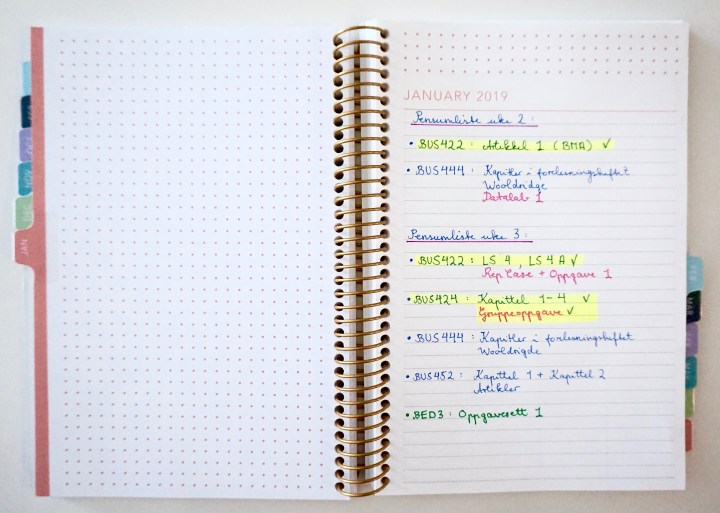 JANUARY 2019
Pensumliste uke 2:
• BUS422: Artikkel 1 (BMA) ✓
• BUS444: Kapitler i forelesningsheftet
Wooldridge
Datalab 1
Pensumliste uke 3:
• BUS422: LS 4, LS 4A ✓
Rep Case + Oppgave 1
• BUS424: Kapittel 1-4 ✓
Gruppeoppgave ✓
• BUS444: Kapitler i forelesningsheftet
Wooldrigde
• BUS452: Kapittel 1 + Kapittel 2
Artikler
• BED3: Oppgavesett 1
OCT
NOV
DEC
JAN
FEB
MAR